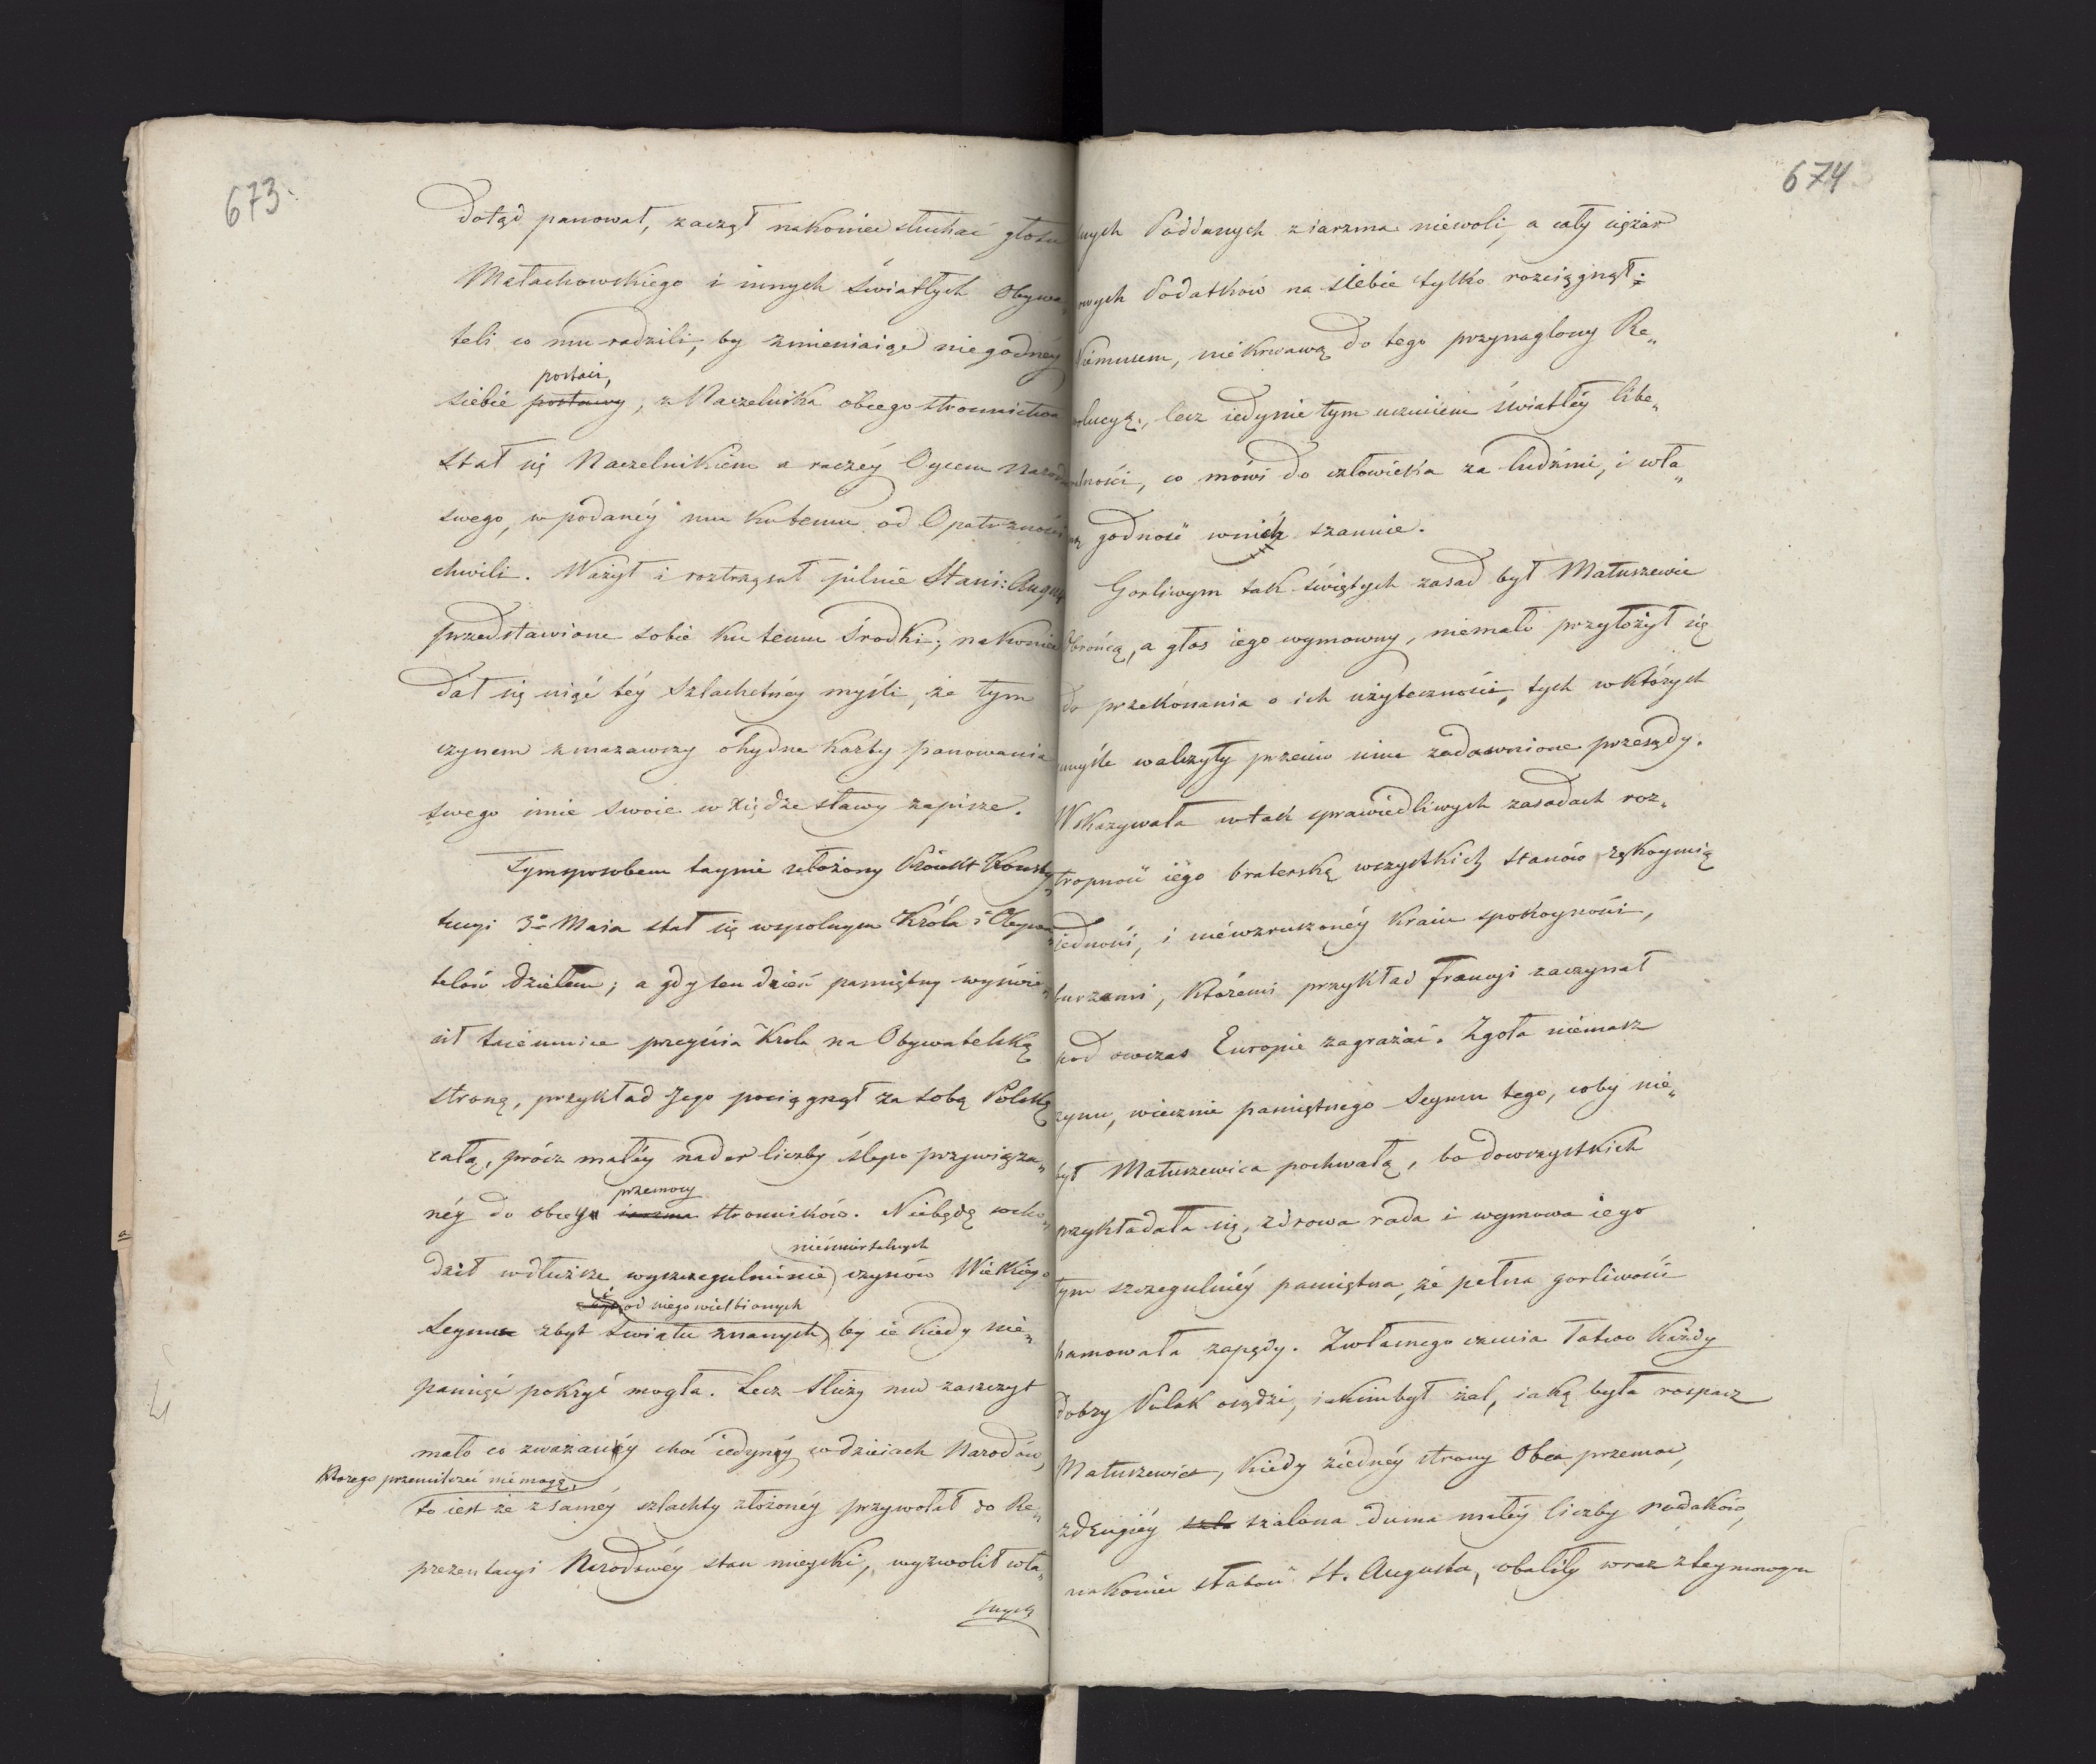 673.
dotąd panował, zaczął nakoniec słuchać głosu
Małachowskiego i innych światłych Obywa„
teli co mu radzili, by zmieniaiąc niegodnéy
postaci,
siebie postawy, z Naczelnika obcego stronnictwa
stał się Naczelnikiem a raczéy Oycem Narodu
swego, w podanéy mu ku temu od Opatrzności
chwili. Ważył i roztrząsał pilnie Stani: Augus
przedstawione sobie ku temu środki; nakoniec
dał się uiąć téy szlachetnéy myśli, że tym
czynem zmazawszy ohydne karty panowania
swego imie swoie w xiędze sławy zapisze.
Tymsposobem taynie ułożony Proiekt Konsty„
tucyi 3º Maia stał się wspolnym Króla i Obywa„
telów dziełem; a gdy ten dzień pamiętny wyświe„
cił taiemnice przeyścia Krola na Obywatelską
stronę, przykład Jego pociągnął za sobą Polskę
całą, prócz małéy nader liczby ślepo przywiąza„
przemocy
néy do obcego iarzma stronników. Niebędę wcho„
nieśmiertelnych
dził w dłuższe wyszczegulnienie czynów Wielkiego
i od niego wielbionych
Seymu zbyt światu znanych by ie kiedy nie„
pamięć pokryć mogła. Lecz służy mu zaszczyt
mało co zważanéy choć iedynéy w dzieiach Narodów,
ktorego przemilczeć niemogę,
to iest że z saméy szlachty złożonéy przywołał do Re„
prezentacyi Narodowéy stan mieyski, wyzwolił wła„
snych
674
snych Poddanych z iarzma niewoli, a cały ciężar
nowych Podatków na siebie tylko rozciągnął:
Niemusem, nie krwawą do tego przynaglony Re„
wolucyą, lecz iedynie tym uczuciem światłéy libe„
ralności, co mówi do człowieka za ludźmi, i wła„
sną godność wnich szanuie.
Gorliwym tak świętych zasad był Matuszewic
Obrońcą, a głos iego wymowny, niemało przyłożył się
do przekónania o ich użyteczności, tych w których
umyśle walczyły przeciw nim zadawnione przesądy.
Wskazywała w tak sprawiedliwych zasadach roz„
tropność iego braterską wszystkich stanów rękoymią
iedności, i niewzruszonéy kraiu spokoyności,
burzami, któremi przykład francyi zaczynał
pod owczas Europie zagrażać. Zgoła niémasz
czynu, wiecznie pamiętnego Seymu tego, coby nie„
był Matuszewica pochwałą, bo dowszystkich
przykładała się, zdrowa rada i wymowa iego
tym szczegulniéy pamiętna, że pełna gorliwości
hamowała zapędy. Zwłasnego czucia łatwo każdy
dobry Polak osądzi, iakim był żal, iaką była rospacz
Matuszewica, kiedy ziednéy strony Obca przemoc,
zdrugiéy szalona duma małéy liczby rodaków,
nakoniec słabość St. Augusta, obaliły wraz z Seymowym